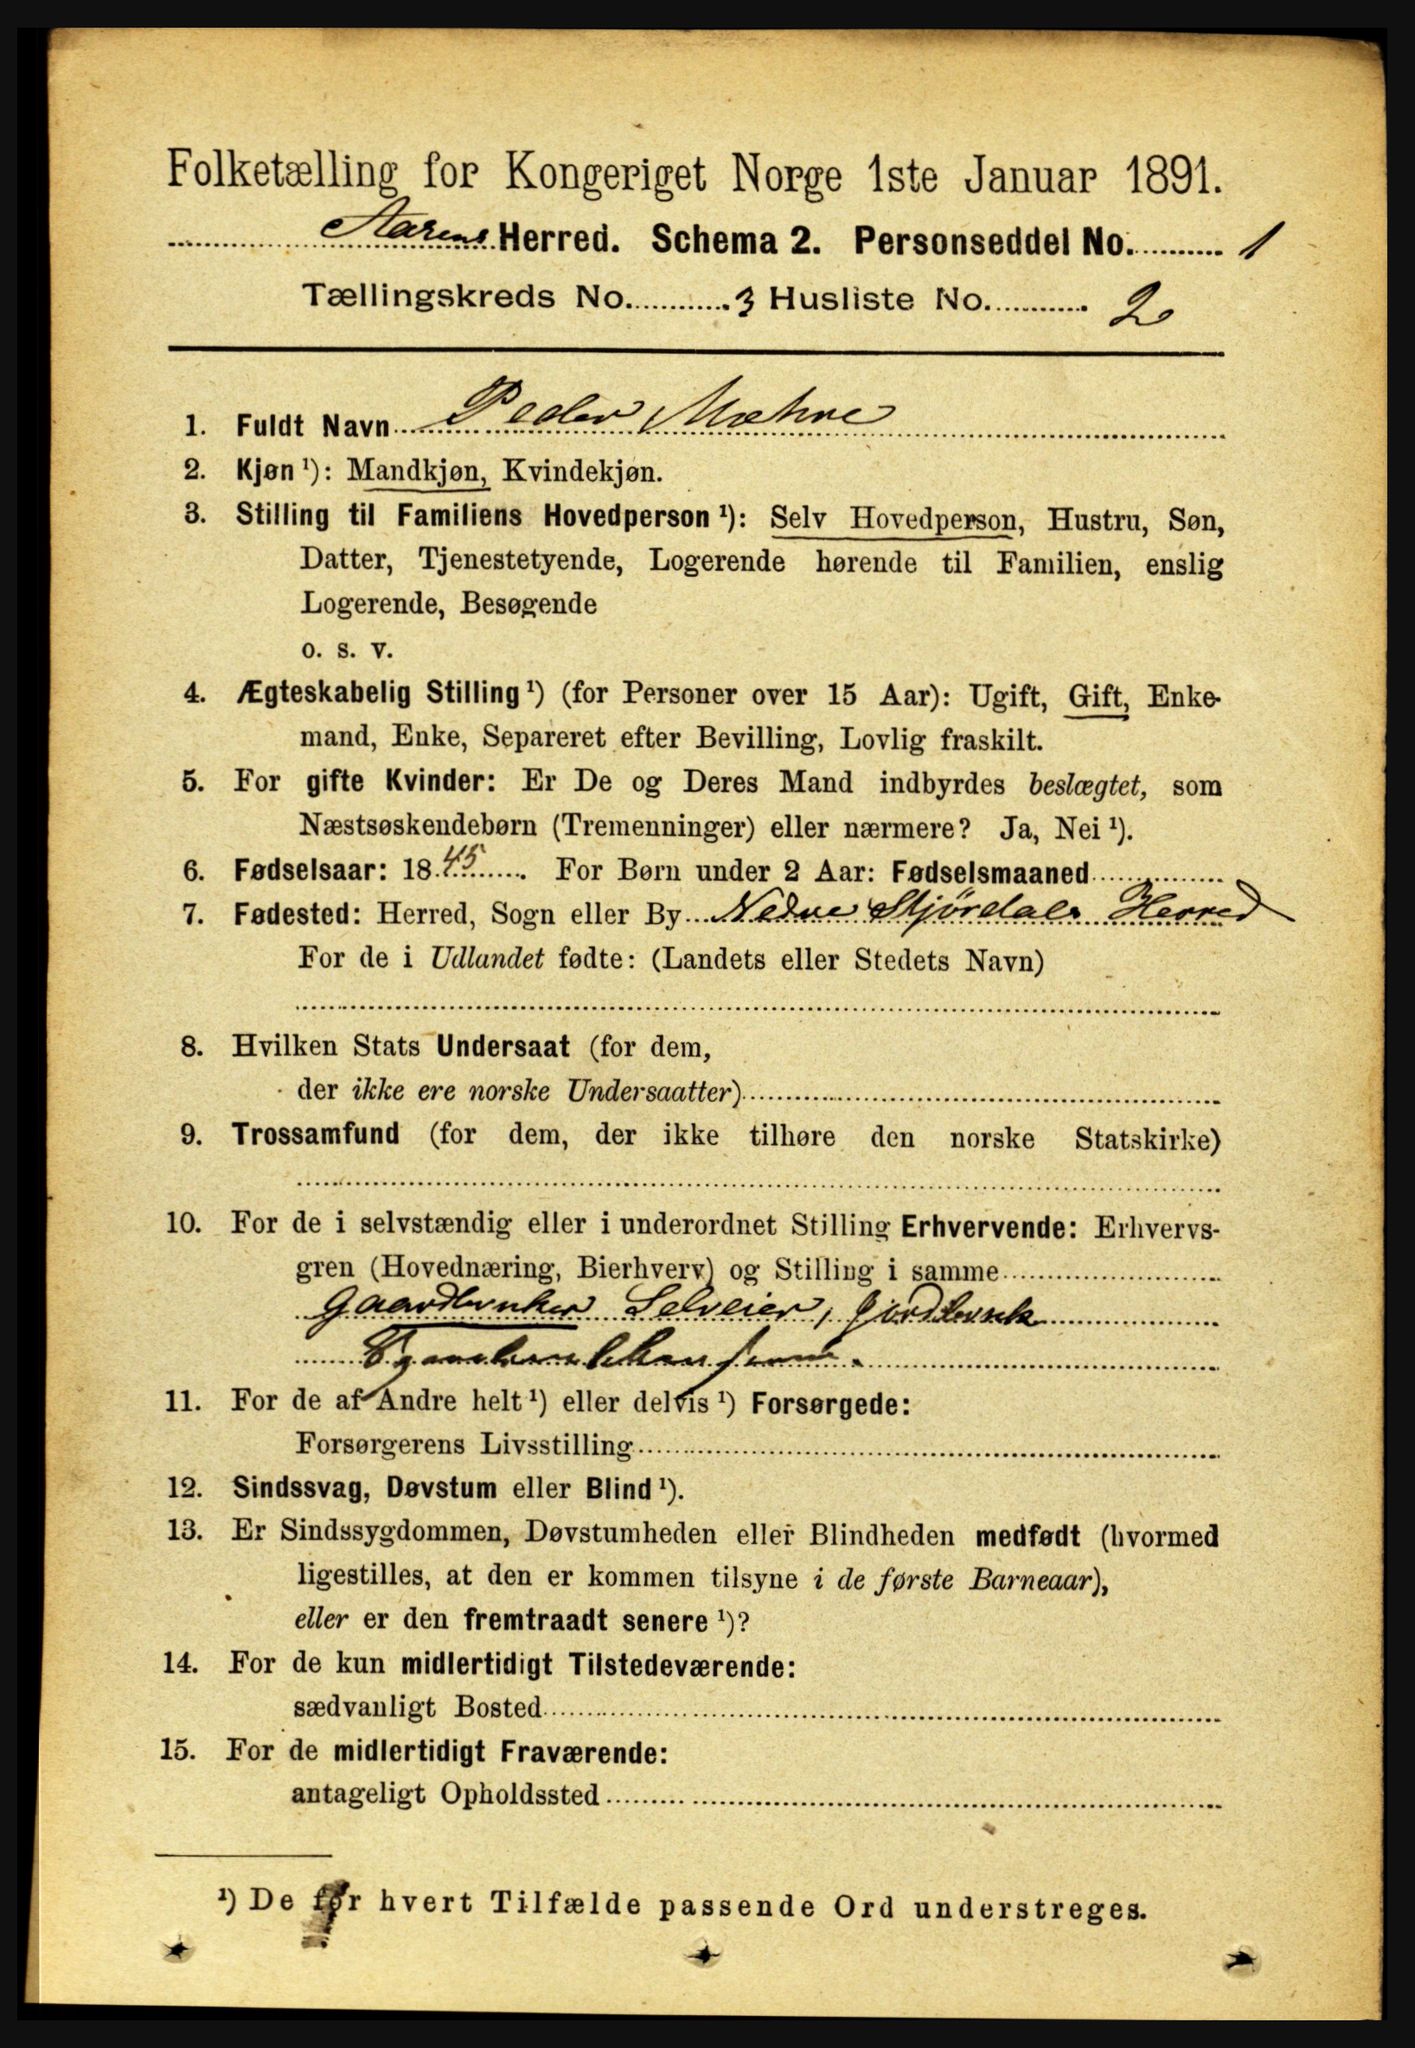 Folketælling for Kongeriget Norge 1ste Januar 1891.
Herred. Schema 2. Personseddel No. 1
Tællingskreds No. 3 Husliste No. 2
1. Fuldt Navn Peder Mæhre
2. Kjøn ¹): Mandkjøn, Kvindekjøn.
3. Stilling til Familiens Hovedperson ¹): Selv Hovedperson, Hustru, Søn,
Datter, Tjenestetyende, Logerende hørende til Familien, enslig
Logerende, Besøgende
o. s. v.
4. Ægteskabelig Stilling ¹) (for Personer over 15 Aar): Ugift, Gift, Enke-
mand, Enke, Separeret efter Bevilling, Lovlig fraskilt.
5. For gifte Kvinder: Er De og Deres Mand indbyrdes beslægtet, som
Næstsøskendebørn (Tremenninger) eller nærmere? Ja, Nei ¹).
6. Fødselsaar: 1845. For Børn under 2 Aar: Fødselsmaaned
7. Fødested: Herred, Sogn eller By Nedre Stjørdals Herred
For de i Udlandet fødte: (Landets eller Stedets Navn)
8. Hvilken Stats Undersaat (for dem,
der ikke ere norske Undersaatter)
9. Trossamfund (for dem, der ikke tilhøre den norske Statskirke)
10. For de i selvstændig eller i underordnet Stilling Erhvervende: Erhvervs-
gren (Hovednæring, Bierhverv) og Stilling i samme
Gaardbruker Selveier, Jordbruk
11. For de af Andre helt ¹) eller delvis ¹) Forsørgede:
Forsørgerens Livsstilling
12. Sindssvag, Døvstum eller Blind ¹).
13. Er Sindssygdommen, Døvstumheden eller Blindheden medfødt (hvormed
ligestilles, at den er kommen tilsyne i de første Barneaar),
eller er den fremtraadt senere ¹)?
14. For de kun midlertidigt Tilstedeværende:
sædvanligt Bosted
15. For de midlertidigt Fraværende:
antageligt Opholdssted
¹) De før hvert Tilfælde passende Ord understreges.